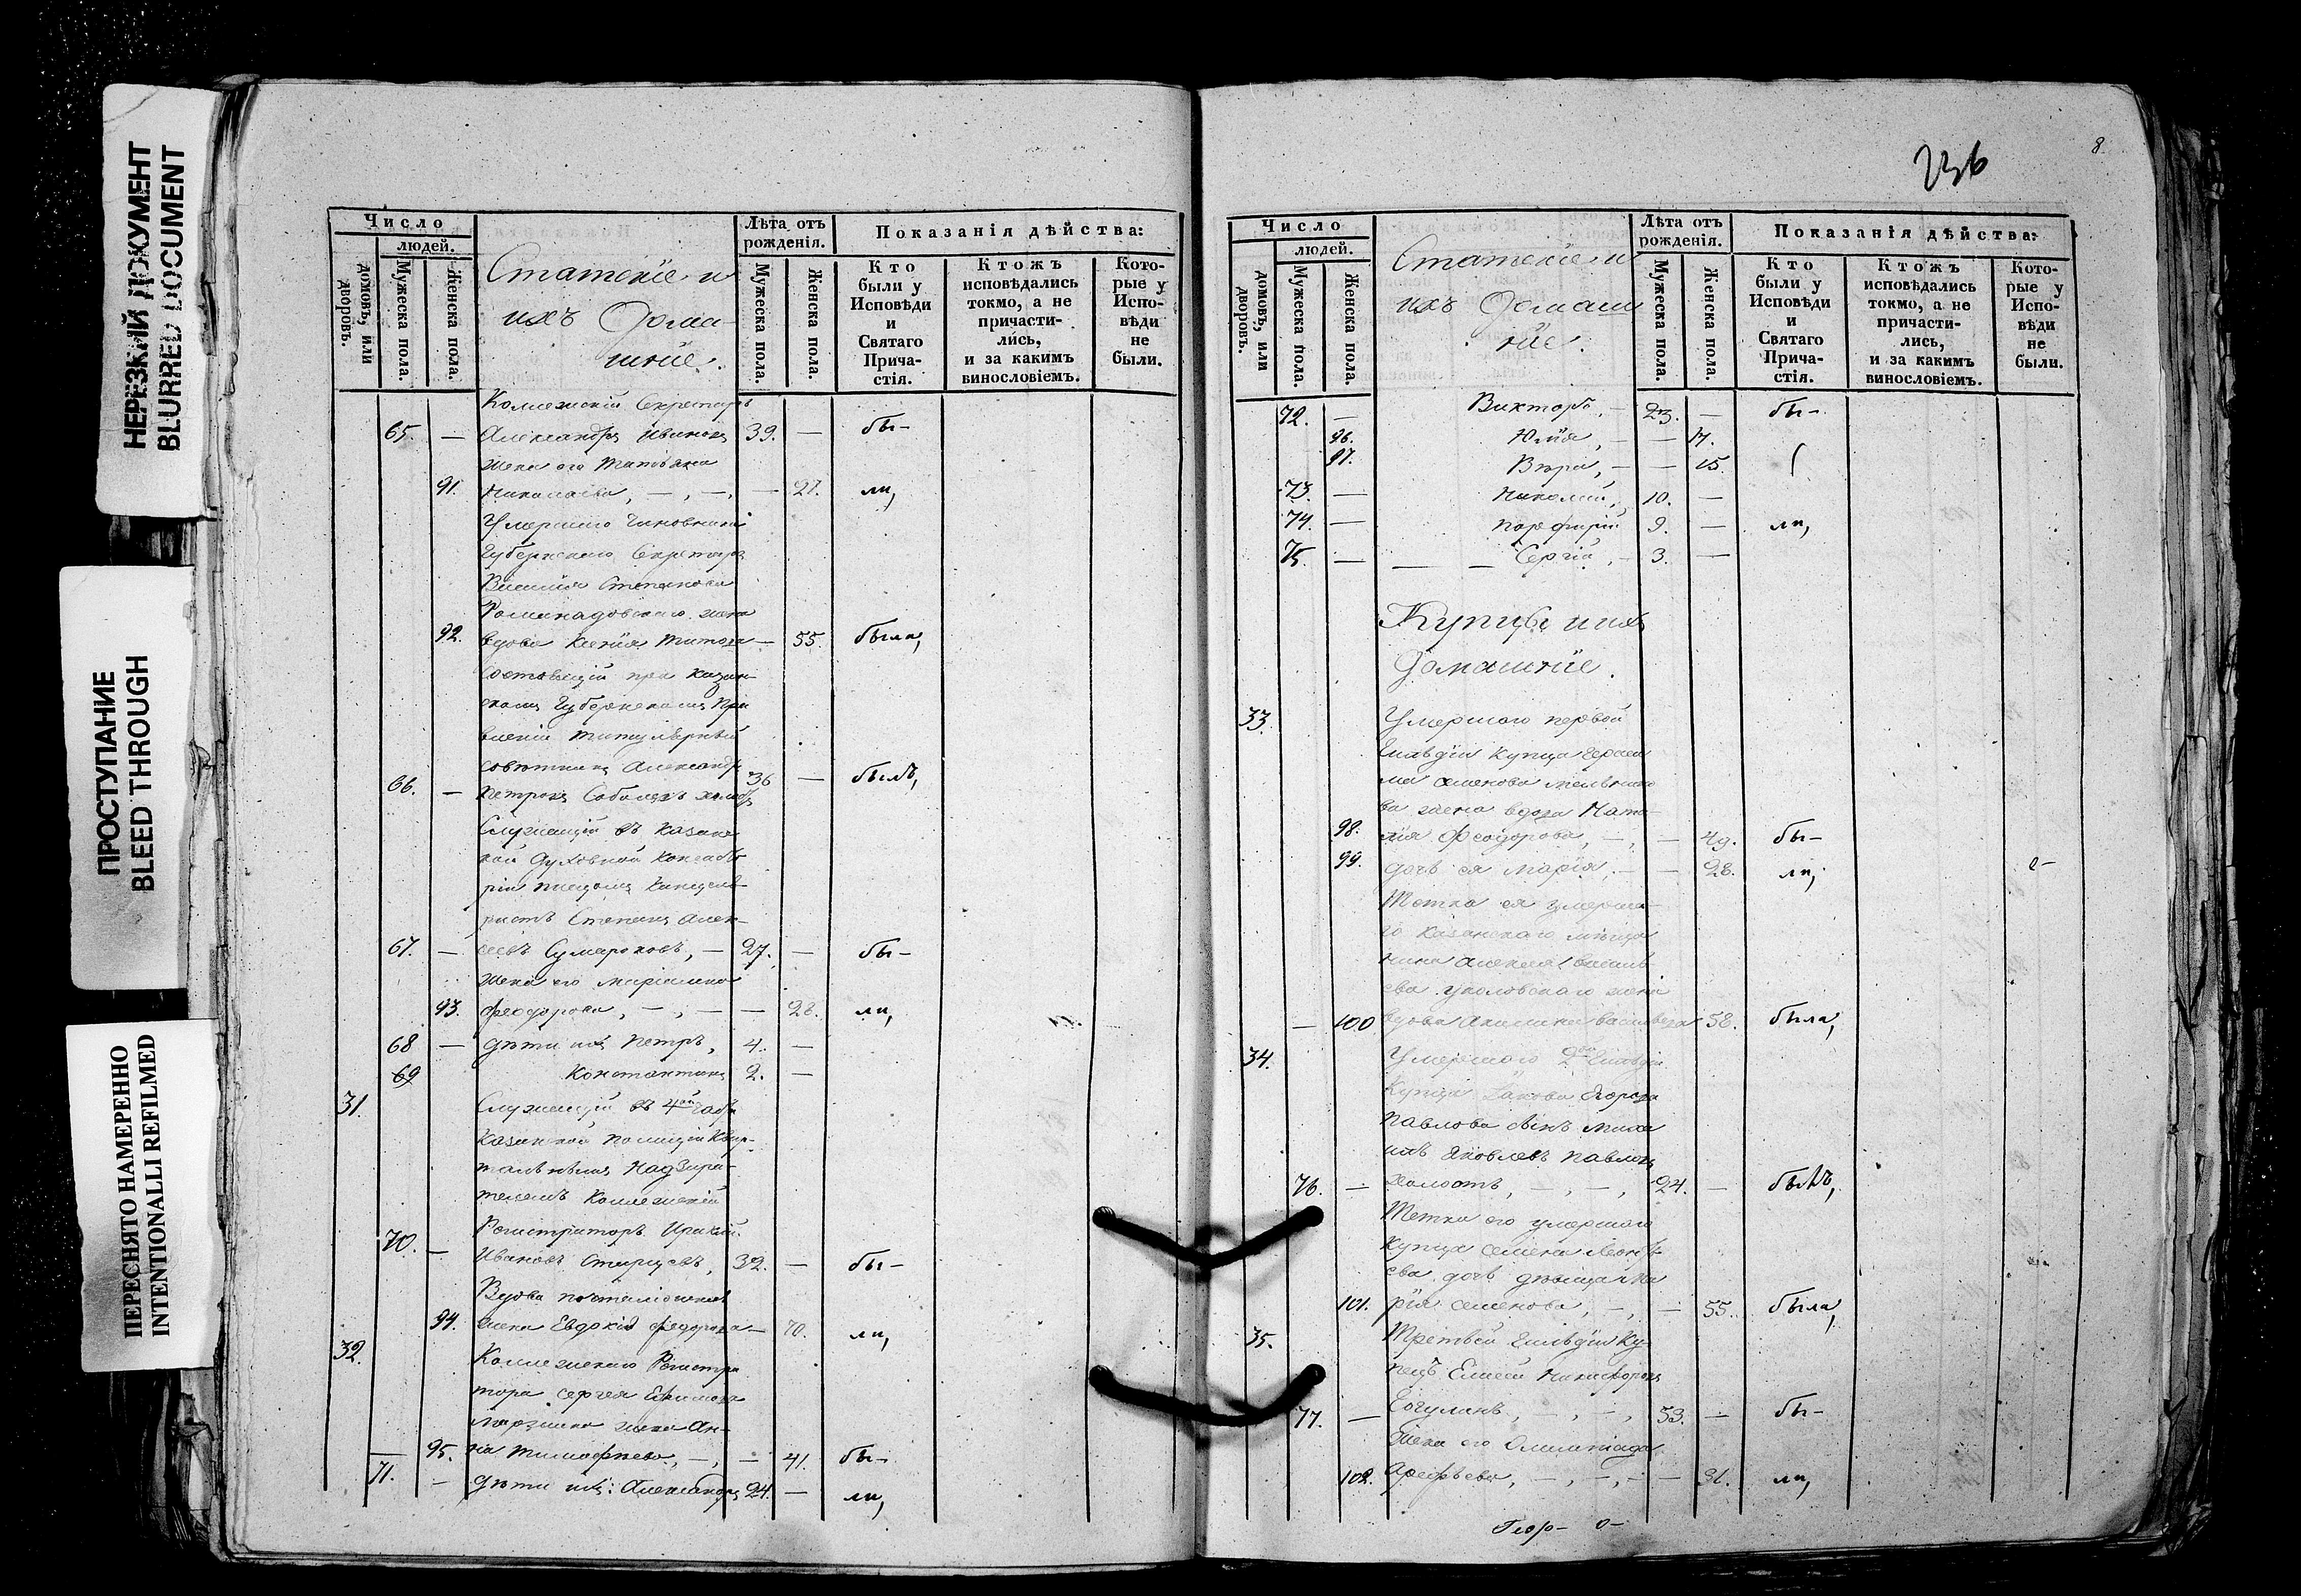 НЕРЕЗКИЙ ДОКУМЕНТ
BLURRED DOCUMENT
ПРОСТУПАНИЕ
BLEED THROUGH
ПЕРЕСНЯТО НАМЕРЕННО
INTENTIONALLI REFILMED
Число
людей.
домовъ, или дворовъ.
Мужеска пола.
Женска пола.
Статскіе и
ихъ Дома-
шніе.
Лѣта отъ рожденія.
Мужеска пола.
Женска пола.
Показанія дѣйства:
Кто были у Исповѣди и Святаго Прича-стія.
Ктожъ исповѣдались токмо, а не причасти-лись, и за какимъ винословіемъ.
Кото-рые у Испо-вѣди не были.
Коллежскій Секретарь
65. — Александръ Ивановъ 39. — бы-
жена его Татьяна
91. Николаева, —, —, — 27. ли,
Умершаго Чиновника
Губернскаго Секретаря
Василія Степанова
жена
92. вдова Ксенія Титова — 55. была,
Состоящій при Казан-
скомъ Губернскомъ Пра
вленіи титулярный
совѣтникъ Александръ
66. — Петровъ 36 — былъ,
Служащій въ Казанс
кой Духовной Консисто
ріи писцомъ Канцеля-
ристъ Степанъ Алек-
67. — сѣевъ Сумароковъ, — 27. — бы-
жена его Маріамна
93. Феодорова, —, — — 28. ли,
68 — дѣти ихъ Петръ, 4. —
69 Константинъ 2. —
31. Служащій въ 4ой части
Казанской Полиціи Квар-
тальнымъ Надзира-
телемъ Коллежскій
70. — Регистраторъ Ираклій
Ивановъ 32. — бы-
Вдова почталіонская
94. жена Евдокія Федорова — 70. ли,
32. Коллежскаго Регистра
тора Сергея Ефимова
жена Ан-
95. на Тимофеева, —, — 41. бы-
71. — дѣти ихъ: Александръ 24. — ли,
236
8.
Число
людей.
домовъ, или дворовъ.
Мужеска пола.
Женска пола.
Статскіе и
ихъ Домаш
ніе.
Лѣта отъ рожденія.
Мужеска пола.
Женска пола.
Показанія дѣйства:
Кто были у Исповѣди и Святаго Прича-стія.
Ктожъ исповѣдались токмо, а не причасти-лись, и за какимъ винословіемъ.
Кото-рые у Испо-вѣди не были.
72. — Викторъ, — 23. — бы-
96. Юлія, — — 17.
97. Вѣра, — — 15.
73. — Николай, 10. —
74. — Порфирій 9. — ли,
75. — Сергій, — 3. —
Купцы и ихъ
Домашніе.
33. Умершаго первой
Гильдіи Купца Гераси
ма Семенова Мельнико
ва жена вдова Ната-
98. лія Феодорова, —, — 49. бы-
99. дочь ея Марія, — — 28. ли,
Тетка ея умерша-
го Казанскаго мѣща
нина Алексея Василь
ева жена
— 100 вдова Акилина Васильева 58. была,
34. Умершаго 2ой Гильдіи
Купца Іакова Егорова
Павлова сынъ Миха
илъ Яковлевъ Павловъ
76. — холостъ, —, —, 24. — былъ,
Тетка его умершаго
Купца Семена Леонть
ева дочь дѣвица Ма
101. рія Семенова, —, — 55. была,
35. Третьей Гильдіи Ку-
пецъ Елисей Никифоровъ
77. — —, —, 53. — бы-
жена его Олимпіада
102. Арефьева, —, —, — 31. ли,